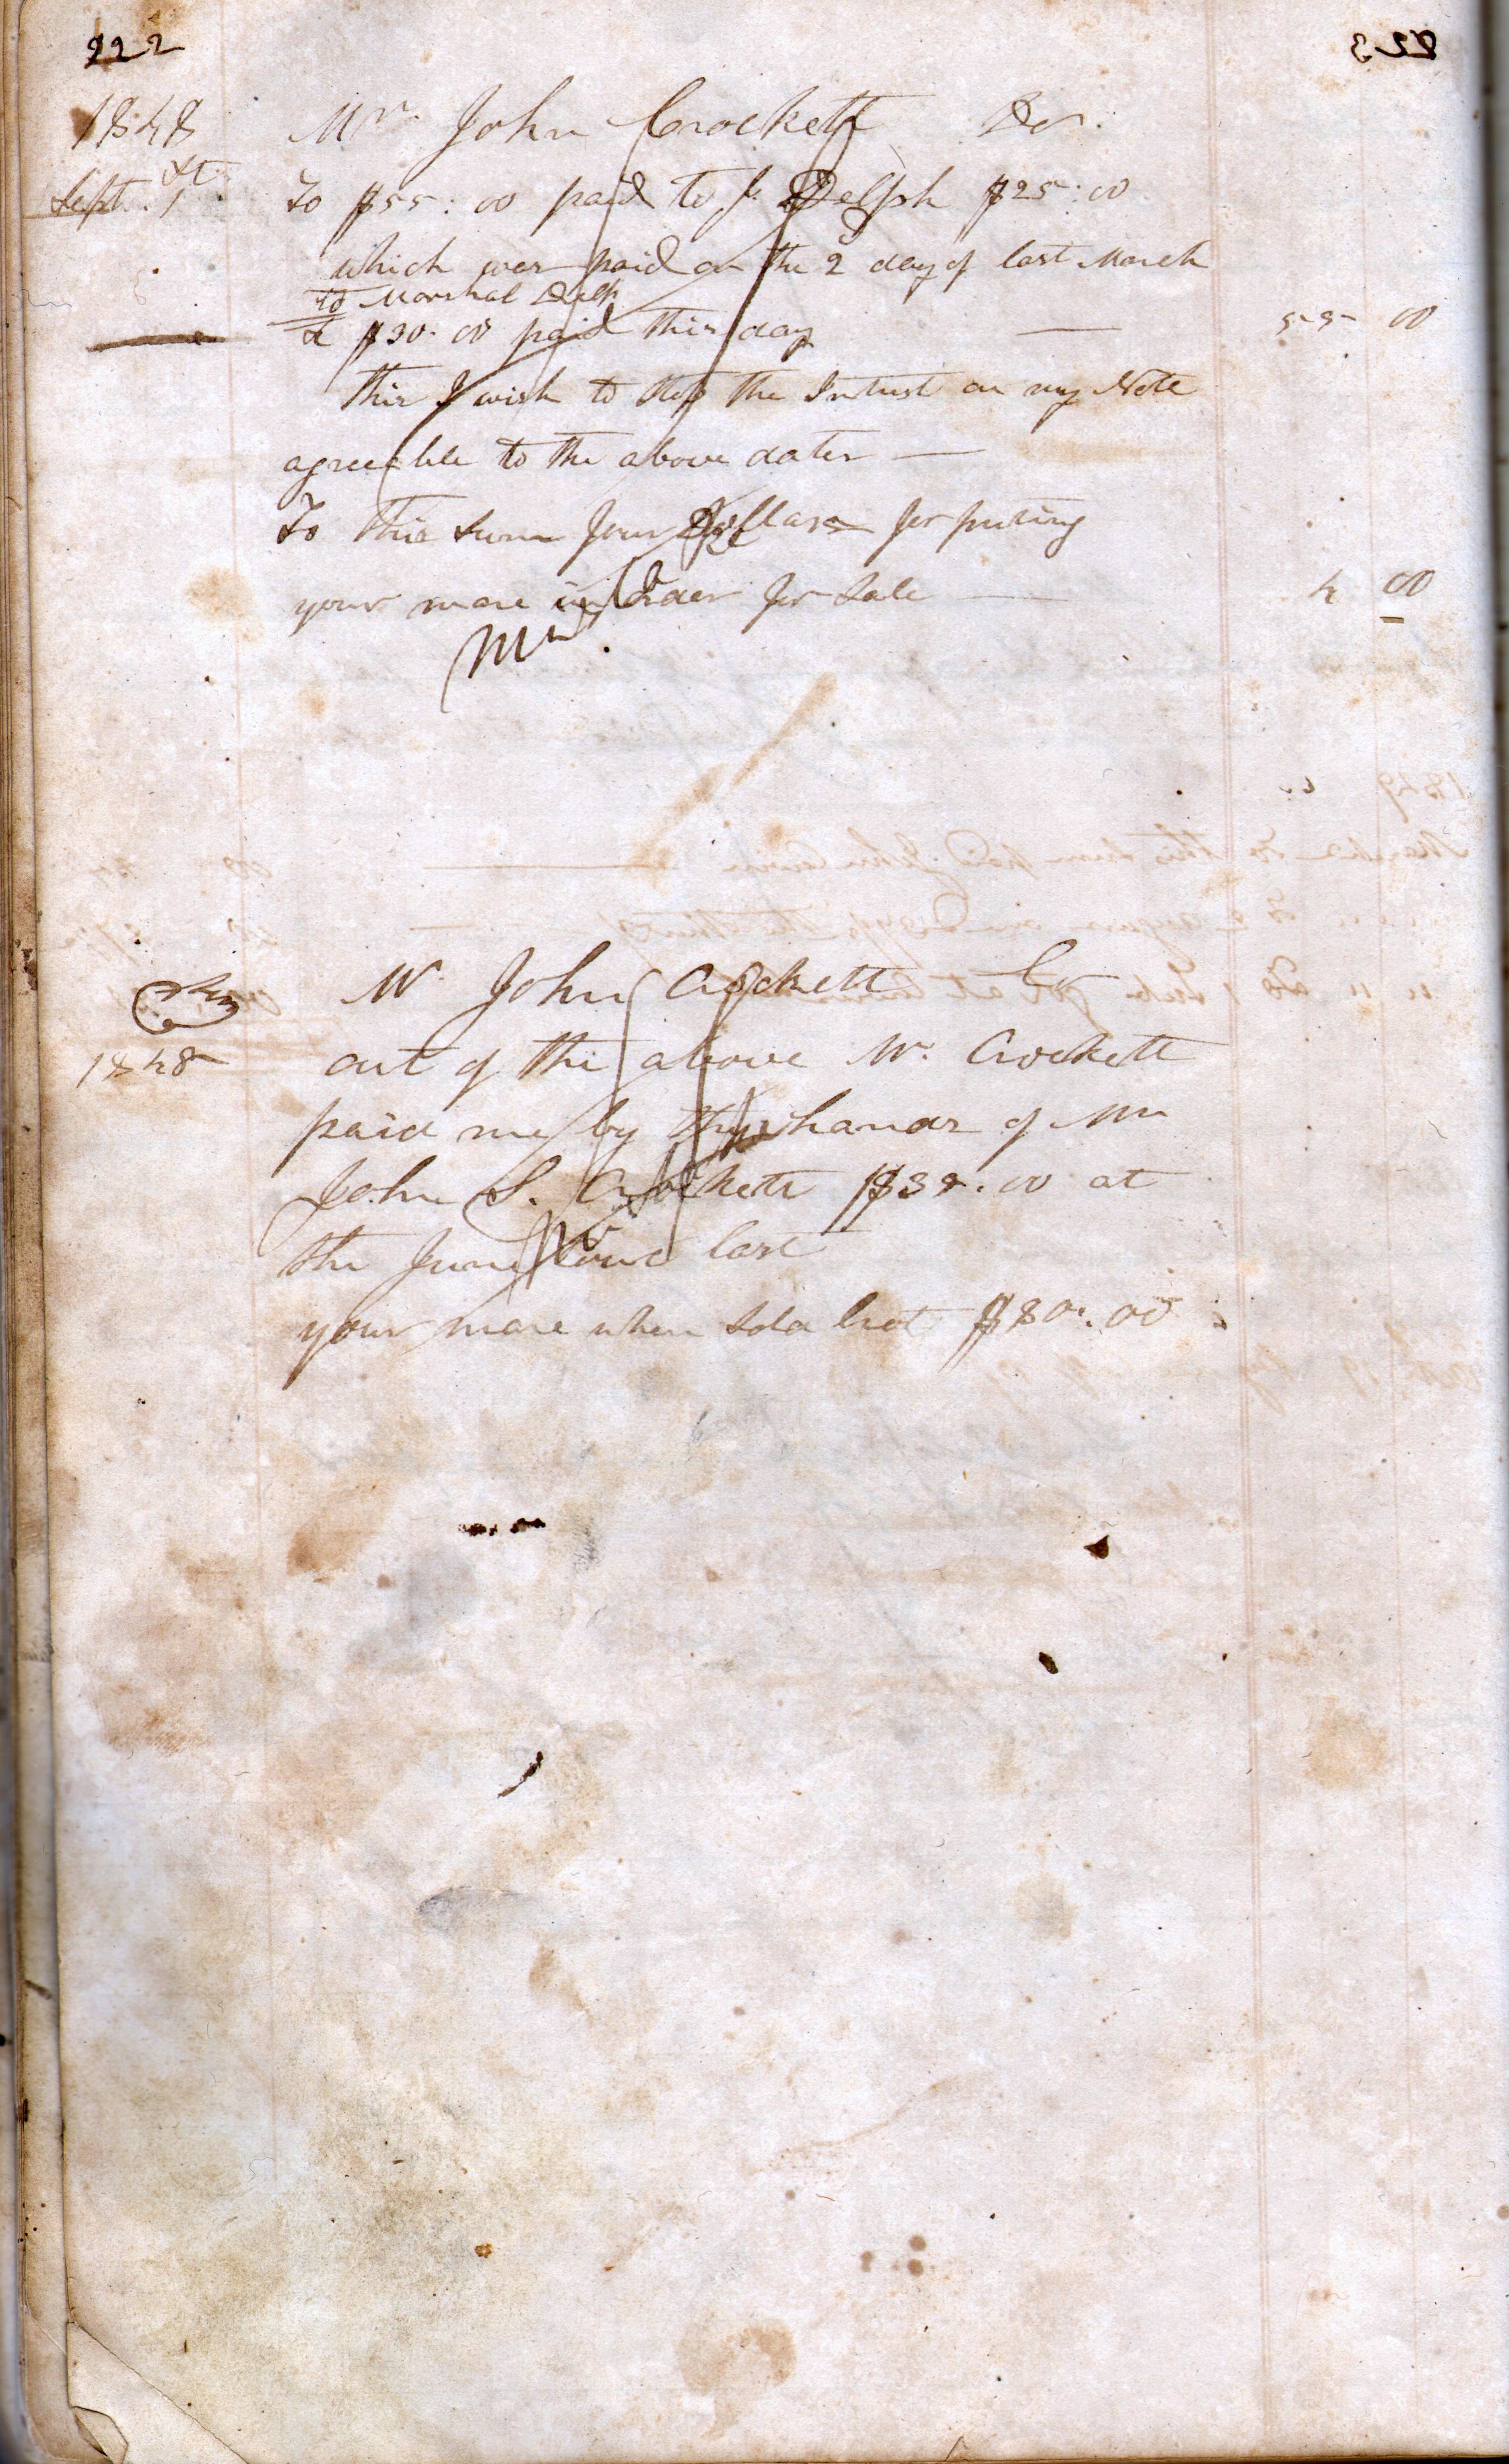 222
1848 Mr. John Crockett Dr.
Sept. 1st To $55:00 paid to J. Delph $25:00
which wer paid on the 2 day of last March
to Marshal Delp
& $30.00 paid this day — 55 00
this I wish to stop the Intrust on my Note
agreeable to the above dates —
To this sum four Dollars for puting
your mare in order for sale — 4 00
Mr. John Crockett Cr
1848 out of the above Mr. Crockett
paid me by the hands of Mr
John S. Crockett $38.00 at
the June Court last
your mare when sold brot $80.00